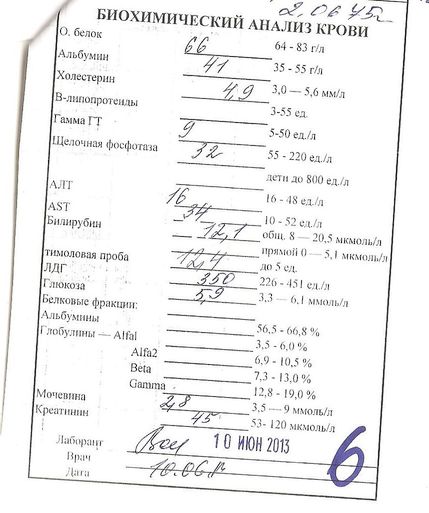 2,0675г
БИОХИМИЧЕСКИЙ АНАЛИЗ КРОВИ
О. белок 66 64 - 83 г/л
Альбумин 41 35 - 55 г/л
Холестерин 4,9 3,0 — 5,6 мм/л
В-липопротеиды 3-55 ед.
Гамма ГТ 9 5-50 ед./л
Щелочная фосфотаза 32 55 - 220 ед./л
дети до 800 ед./л
АЛТ 16 16 - 48 ед./л
AST 34 10 – 52 ед./л
Билирубин 12,1 общ. 8 — 20,5 мкмоль/л
прямой 0 — 5,1 мкмоль/л
тимоловая проба 12,4 до 5 ед.
ЛДГ 350 226 - 451 ед./л
Глюкоза 5,9 3,3 — 6,1 ммоль/л
Белковые фракции:
Альбумины 56,5 - 66,8 %
Глобулины — Alfal 3,5 - 6,0 %
Alfa2 6,9 - 10,5 %
Beta 7,3 - 13,0 %
Gamma 12,8 - 19,0 %
Мочевина 2,8 3,5 — 9 ммоль/л
Креатинин 45 53- 120 мкмоль/л
Лаборант 10 ИЮН 2013
Врач
Дата 10.06
6